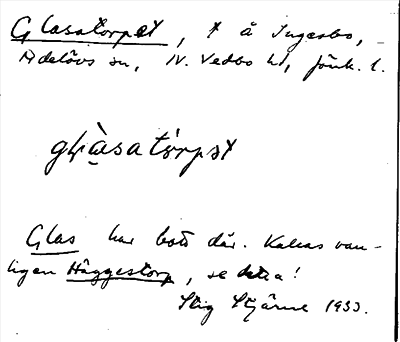 Glasatorpet, t å Ingarbo,
Adelövs sn, N. Vedbo hd, Jönk. l.
glàsatórpət
Glas har bott där. Kallas van-
ligen Häggestorp, se detta!
Stig Stjärne 1933.